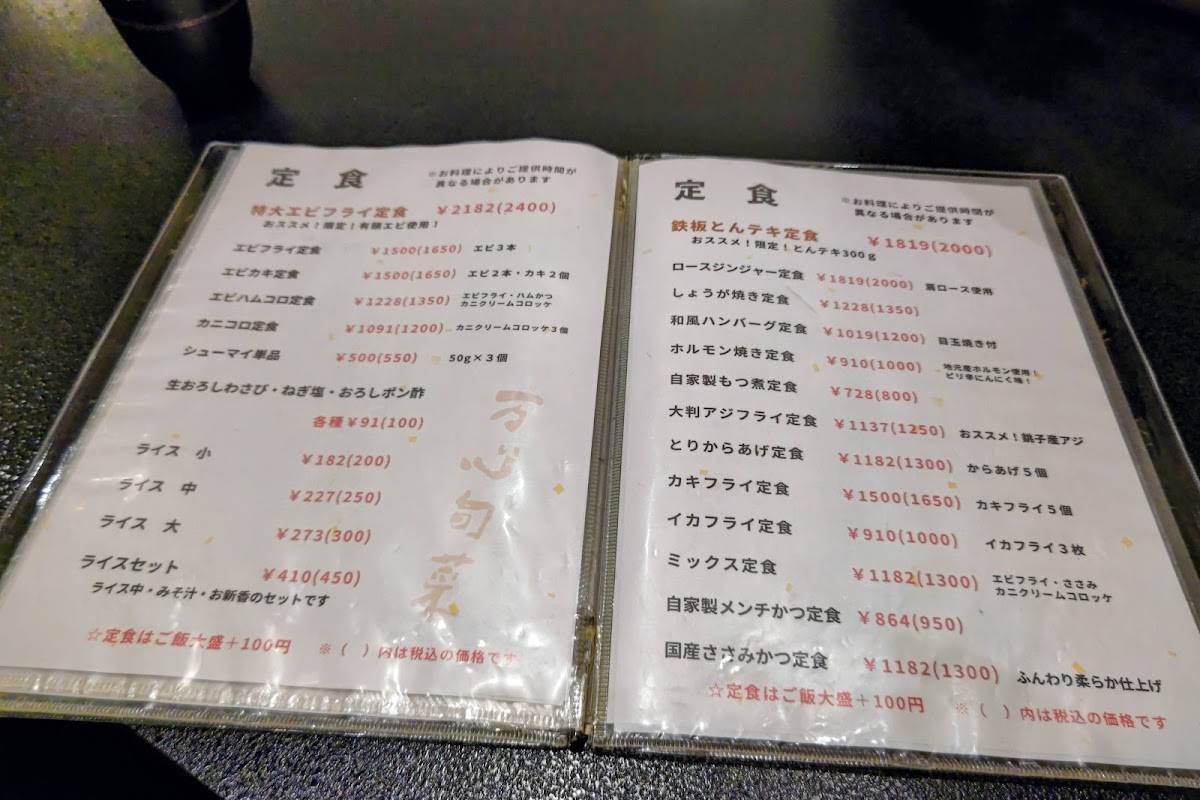 定食
※お料理によりご提供時間が
異なる場合があります
特大エビフライ定食 ¥2182(2400)
おススメ！限定！有頭エビ使用！
エビフライ定食 ¥1500(1650) エビ３本
エビカキ定食 ¥1500(1650) エビ２本・カキ２個
エビハムコロ定食 ¥1228(1350) エビフライ・ハムかつ
カニクリームコロッケ
カニコロ定食 ¥1091(1200) カニクリームコロッケ３個
シューマイ単品 ¥500(550) 50g×３個
生おろしわさび・ねぎ塩・おろしポン酢
各種¥91(100)
ライス 小 ¥182(200)
ライス 中 ¥227(250)
ライス 大 ¥273(300)
ライスセット ¥410(450)
ライス中・みそ汁・お新香のセットです
☆定食はご飯大盛＋100円 ※（ ）内は税込の価格です
万心旬菜
定食
※お料理によりご提供時間が
異なる場合があります
鉄板とんテキ定食 ¥1819(2000)
おススメ！限定！とんテキ300ｇ
ロースジンジャー定食 ¥1819(2000) 肩ロース使用
しょうが焼き定食 ¥1228(1350)
和風ハンバーグ定食 ¥1019(1200) 目玉焼き付
ホルモン焼き定食 ¥910(1000) 地元産ホルモン使用！
ピリ辛にんにく味！
自家製もつ煮定食 ¥728(800)
大判アジフライ定食 ¥1137(1250) おススメ！銚子産アジ
とりからあげ定食 ¥1182(1300) からあげ５個
カキフライ定食 ¥1500(1650) カキフライ５個
イカフライ定食 ¥910(1000) イカフライ３枚
ミックス定食 ¥1182(1300) エビフライ・ささみ
カニクリームコロッケ
自家製メンチかつ定食 ¥864(950)
国産ささみかつ定食 ¥1182(1300) ふんわり柔らか仕上げ
☆定食はご飯大盛＋100円 ※（ ）内は税込の価格です